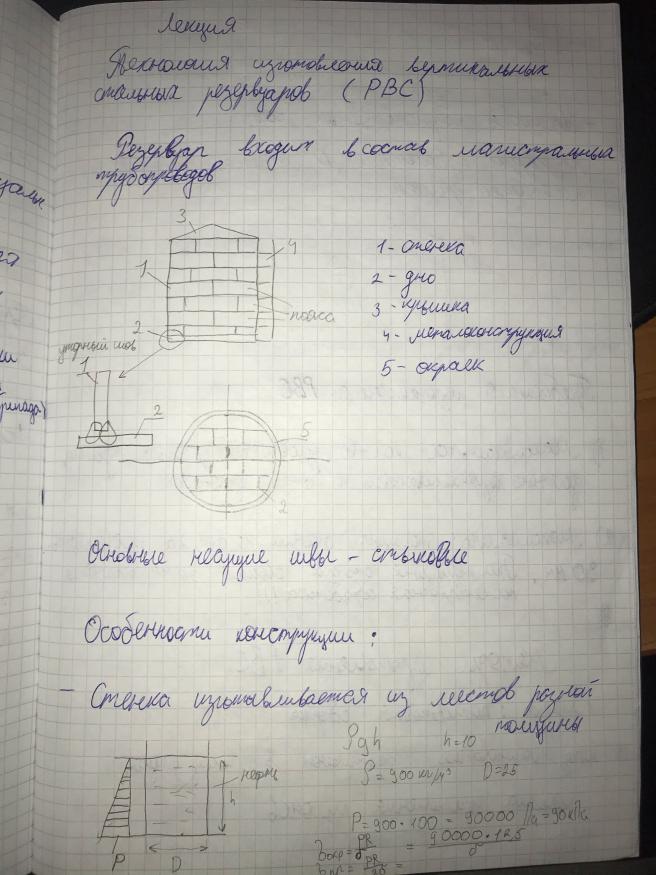 Лекция
Технология изготовления вертикальных
стальных резервуаров (РВС)
Резервуар входит в состав магистральных
трубопроводов
3
4
1
пояса
2
1 - стенка
2 - дно
3 - крышка
4 - металоконструкция
5 - окраек
уторный шов
1
2
5
2
Основные несущие швы - стыковые
Особенности конструкции :
- Стенка изготавливается из листов разной
толщины
ρgh h=10
ρ = 900 кг/м³ D=25
нефть
h
P
D
P = 900 · 100 = 90000 Па = 90 кПа
= 90000 · 12,5